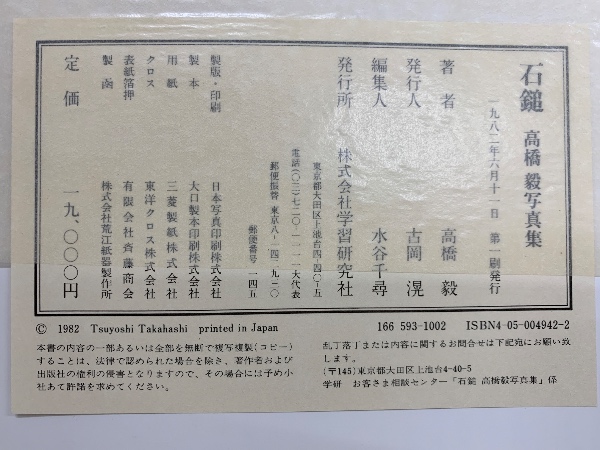 石鎚 高橋 毅写真集
一九八二年六月十一日 第一刷発行
著者 高橋 毅
発行人 古岡 滉
編集人 水谷千尋
発行所 株式会社学習研究社
東京都大田区上池台四-四〇-五
電話(〇三)七二〇-一一一一大代表
郵便振替 東京八-一四二九三〇
郵便番号 一四五
製版・印刷 日本写真印刷株式会社
製本 大口製本印刷株式会社
用紙 三菱製紙株式会社
クロス 東洋クロス株式会社
表紙箔押 有限会社斉藤商会
製函 株式会社荒江紙器製作所
定価 一九、〇〇〇円
© 1982 Tsuyoshi Takahashi printed in Japan
本書の内容の一部あるいは全部を無断で複写複製(コピー)
することは、法律で認められた場合を除き、著作者および
出版社の権利の侵害となりますので、その場合には予め小
社あて許諾を求めてください。
166 593-1002 ISBN4-05-004942-2
乱丁落丁または内容に関するお問合せは下記宛にお願い致
します。
(〒145)東京都大田区上池台4-40-5
学研 お客さま相談センター「石鎚 高橋毅写真集」係